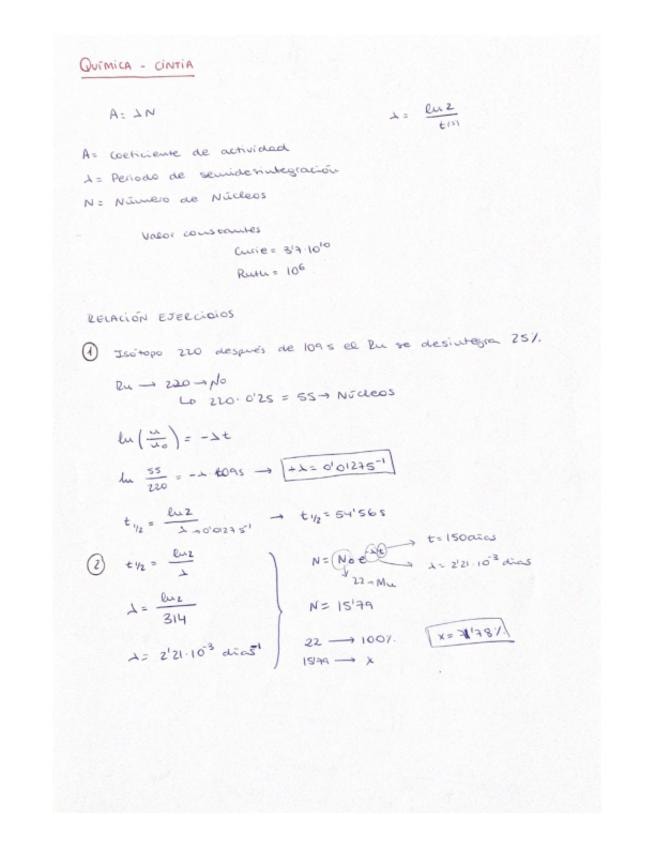 QUÍMICA - CINTIA
A = λN    λ = ln2 / t(s)
A = Coeficiente de actividad
λ = Periodo de semidesintegración
N = Número de Núcleos
Valor constantes
Curie = 3'7·10¹⁰
Ruth = 10⁶
RELACIÓN EJERCICIOS
① Isótopo 220 después de 109 s el Ru se desintegra 25%.
Ru → 220 → No
↳ 220·0'25 = 55 → Núcleos
ln (n/n₀) = -λt
ln 55/220 = -λ 109s → +λ = 0'0127 s⁻¹
t1/2 = ln2 / λ → 0'0127 s⁻¹ → t1/2 = 54'56 s
② t1/2 = ln2 / λ
λ = ln2 / 314
λ = 2'21·10⁻³ días⁻¹
N = No e^-λt → t = 150 días
→ λ = 2'21·10⁻³ días
22 → Mn
N = 15'79
22 → 100%
1579 → x
x = 71'78%